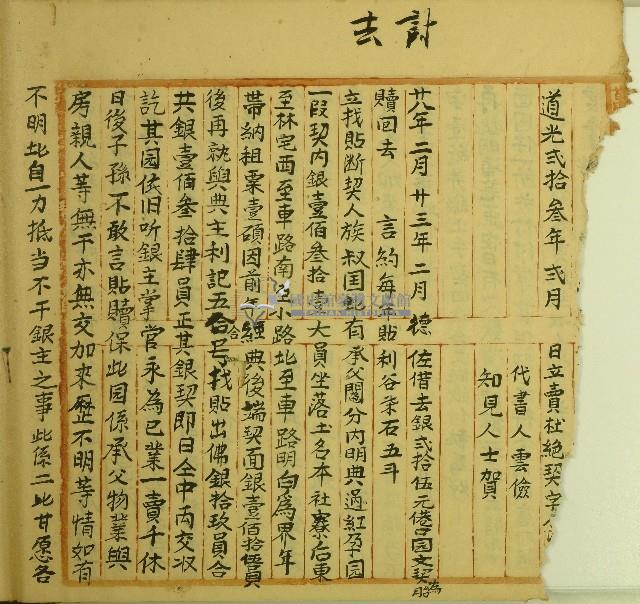 討去
道光弍拾叁年弍月 日立賣杜絕契字人
代書人雲儉
知見人士賀
廿八年二月廿三年二月 德佐借去銀弍拾伍元港口园文契為胎
贖回去 言約每 貼利谷柒石五斗
立找貼断契人族叔国 有承父鬮分內明典過紅孕园
一段契內銀壹佰叁拾 大員坐落土名本社寮后東
至林宅西至車路南至小路北至車路明白為界年
帶納租粟壹碩因前年經典後端契面銀壹佰拾伍員
後再就與典主利記五合号找貼出佛銀拾玖員合
共銀壹佰叁拾肆員正其銀契即日仝中両交收
訖其园依旧听銀主掌管永為已業一賣千休
日後子孫不敢言貼贖保此园係承父物業與
房親人等無干亦無交加來歷不明等情如有
不明此自一力抵当不干銀主之事此係二比甘愿各